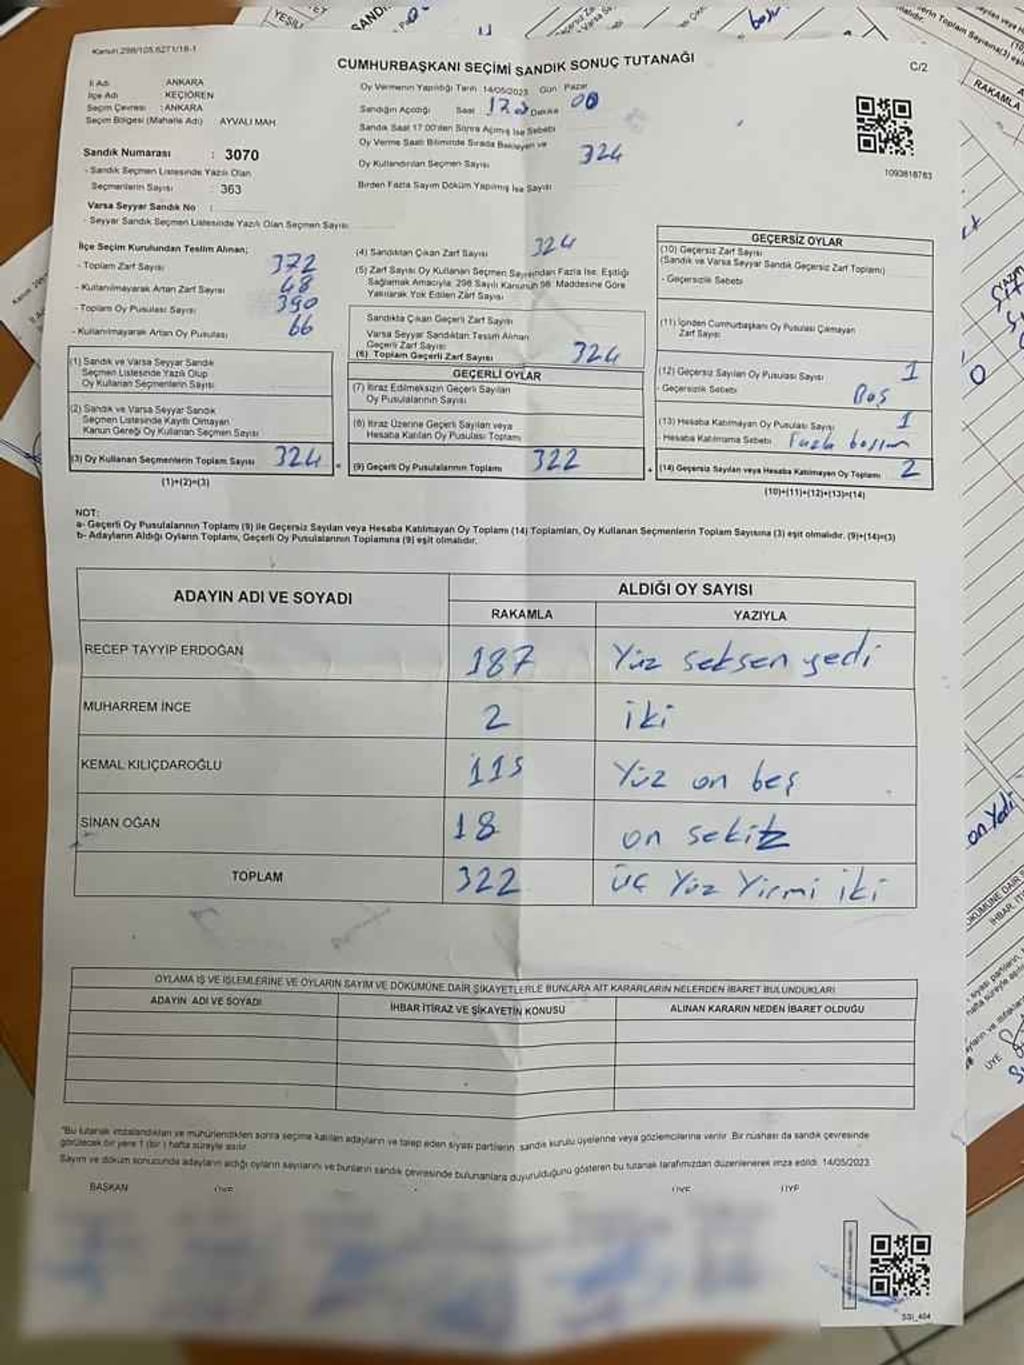 Kanun 298/105,6271/18-1
CUMHURBAŞKANI SEÇİMİ SANDIK SONUÇ TUTANAĞI
C/2
İl Adı ANKARA
İlçe Adı KEÇİÖREN
Seçim Çevresi : ANKARA
Seçim Bölgesi (Mahalle Adı) AYVALI MAH.
Sandık Numarası : 3070
- Sandık Seçmen Listesinde Yazılı Olan
Seçmenlerin Sayısı : 363
Varsa Seyyar Sandık No :
- Seyyar Sandık Seçmen Listesinde Yazılı Olan Seçmen Sayısı
Oy Vermenin Yapıldığı Tarih 14/05/2023 Gün Pazar
Sandığın Açıldığı Saat 17 Dakika 00
Sandık Saat 17.00'den Sonra Açılmış İse Sebebi
Oy Verme Saati Bitiminde Sırada Bekleyen ve
Oy Kullandırılan Seçmen Sayısı 324
Birden Fazla Sayım Döküm Yapılmış İse Sayısı
1093818783
İlçe Seçim Kurulundan Teslim Alınan;
- Toplam Zarf Sayısı 372
- Kullanılmayarak Artan Zarf Sayısı 48
- Toplam Oy Pusulası Sayısı 390
- Kullanılmayarak Artan Oy Pusulası 66
(1) Sandık ve Varsa Seyyar Sandık
Seçmen Listesinde Yazılı Olup
Oy Kullanan Seçmenlerin Sayısı
(2) Sandık ve Varsa Seyyar Sandık
Seçmen Listesinde Kayıtlı Olmayan
Kanun Gereği Oy Kullanan Seçmen Sayısı
(3) Oy Kullanan Seçmenlerin Toplam Sayısı 324
(1)+(2)=(3)
(4) Sandıktan Çıkan Zarf Sayısı 324
(5) Zarf Sayısı Oy Kullanan Seçmen Sayısından Fazla İse, Eşitliği
Sağlamak Amacıyla, 298 Sayılı Kanunun 98. Maddesine Göre
Yakılarak Yok Edilen Zarf Sayısı
Sandıkta Çıkan Geçerli Zarf Sayısı
Varsa Seyyar Sandıktan Teslim Alınan
Geçerli Zarf Sayısı
(6) Toplam Geçerli Zarf Sayısı 324
GEÇERLİ OYLAR
(7) İtiraz Edilmeksizin Geçerli Sayılan
Oy Pusulalarının Sayısı
(8) İtiraz Üzerine Geçerli Sayılan veya
Hesaba Katılan Oy Pusulası Toplamı
(9) Geçerli Oy Pusulalarının Toplamı 322
GEÇERSİZ OYLAR
(10) Geçersiz Zarf Sayısı
(Sandık ve Varsa Seyyar Sandık Geçersiz Zarf Toplamı)
- Geçersizlik Sebebi
(11) İçinden Cumhurbaşkanı Oy Pusulası Çıkmayan
Zarf Sayısı
(12) Geçersiz Sayılan Oy Pusulası Sayısı 1
- Geçersizlik Sebebi Boş
(13) Hesaba Katılmayan Oy Pusulası Sayısı 1
- Hesaba Katılmama Sebebi Fazla basım
(14) Geçersiz Sayılan veya Hesaba Katılmayan Oy Toplamı 2
(10)+(11)+(12)+(13)=(14)
NOT:
a- Geçerli Oy Pusulalarının Toplamı (9) ile Geçersiz Sayılan veya Hesaba Katılmayan Oy Toplamı (14) Toplamları, Oy Kullanan Seçmenlerin Toplam Sayısına (3) eşit olmalıdır. (9)+(14)=(3)
b- Adayların Aldığı Oyların Toplamı, Geçerli Oy Pusulalarının Toplamına (9) eşit olmalıdır.
ADAYIN ADI VE SOYADI ALDIĞI OY SAYISI
RAKAMLA YAZIYLA
RECEP TAYYİP ERDOĞAN 187 Yüz seksen yedi
MUHARREM İNCE 2 iki
KEMAL KILIÇDAROĞLU 115 Yüz on beş
SİNAN OĞAN 18 on sekiz
TOPLAM 322 üç Yüz Yirmi iki
OYLAMA İŞ VE İŞLEMLERİNE VE OYLARIN SAYIM VE DÖKÜMÜNE DAİR ŞİKAYETLERLE BUNLARA AİT KARARLARIN NELERDEN İBARET BULUNDUKLARI
ADAYIN ADI VE SOYADI İHBAR İTİRAZ VE ŞİKAYETİN KONUSU ALINAN KARARIN NEDEN İBARET OLDUĞU
"Bu tutanak imzalandıktan ve mühürlendikten sonra seçime katılan adayların ve talep eden siyasi partilerin, sandık kurulu üyelerine veya gözlemcilerine verilir. Bir nüshası da sandık çevresinde
görülecek bir yere 1 (bir ) hafta süreyle asılır.
Sayım ve döküm sonucunda adayların aldığı oyların sayılarını ve bunların sandık çevresinde bulunanlara duyurulduğunu gösteren bu tutanak tarafımızdan düzenlenerek imza edildi. 14/05/2023
BAŞKAN ÜYE ÜYE ÜYE
SSİ_404
RAKAMLA
on Yedi
ÜYE